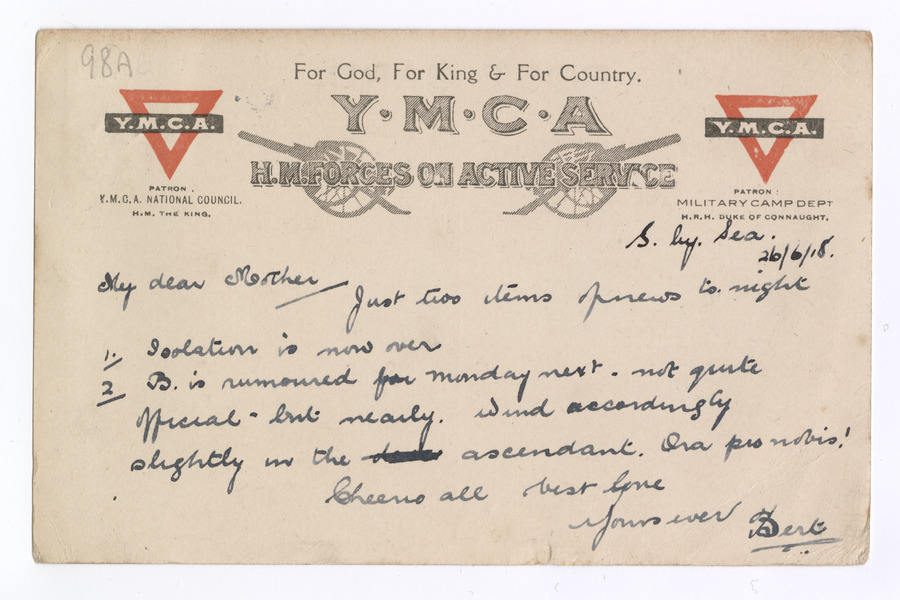 98A
For God, For King & For Country.
Y·M·C·A
H.M. FORCES ON ACTIVE SERVICE
Y.M.C.A.
PATRON.
Y.M.C.A. NATIONAL COUNCIL.
H.M. THE KING.
Y.M.C.A.
PATRON:
MILITARY CAMP DEPT
H.R.H. DUKE OF CONNAUGHT.
S. by. Sea.
26/6/18.
My dear Mother
Just two items of news to.night
1. Isolation is now over
2 B. is rumoured for monday next. not quite
official - but nearly. Wind accordingly
slightly in the ascendant. Ora pro nobis!
Cheerio all best love
Yours ever Bert